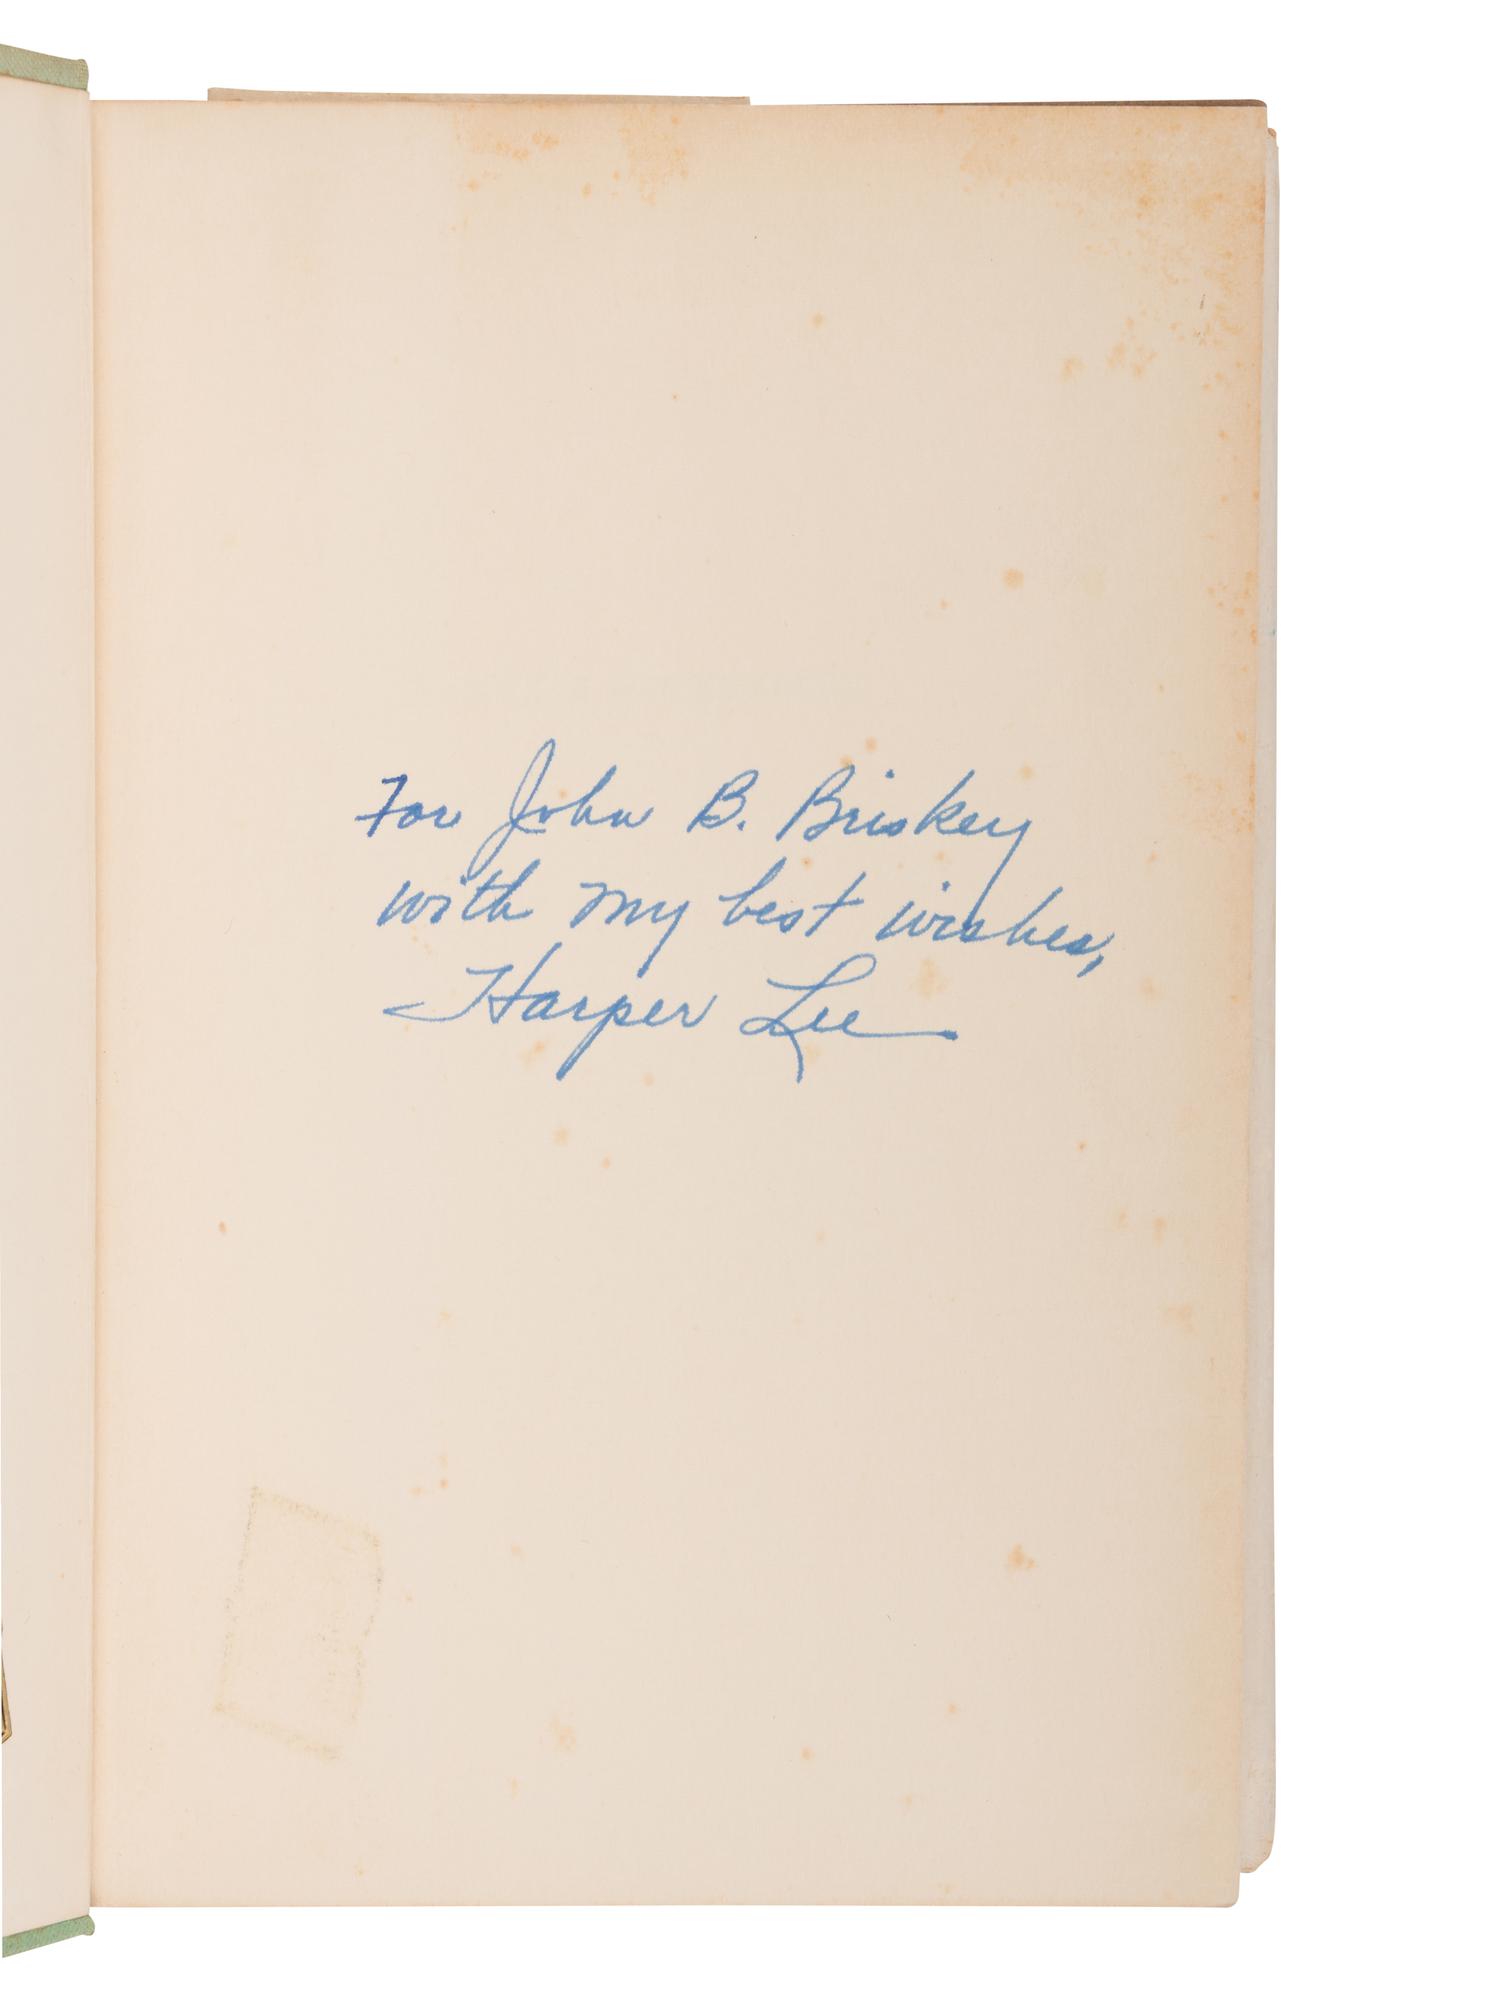 For John B. Briskey
with my best wishes,
Harper Lee